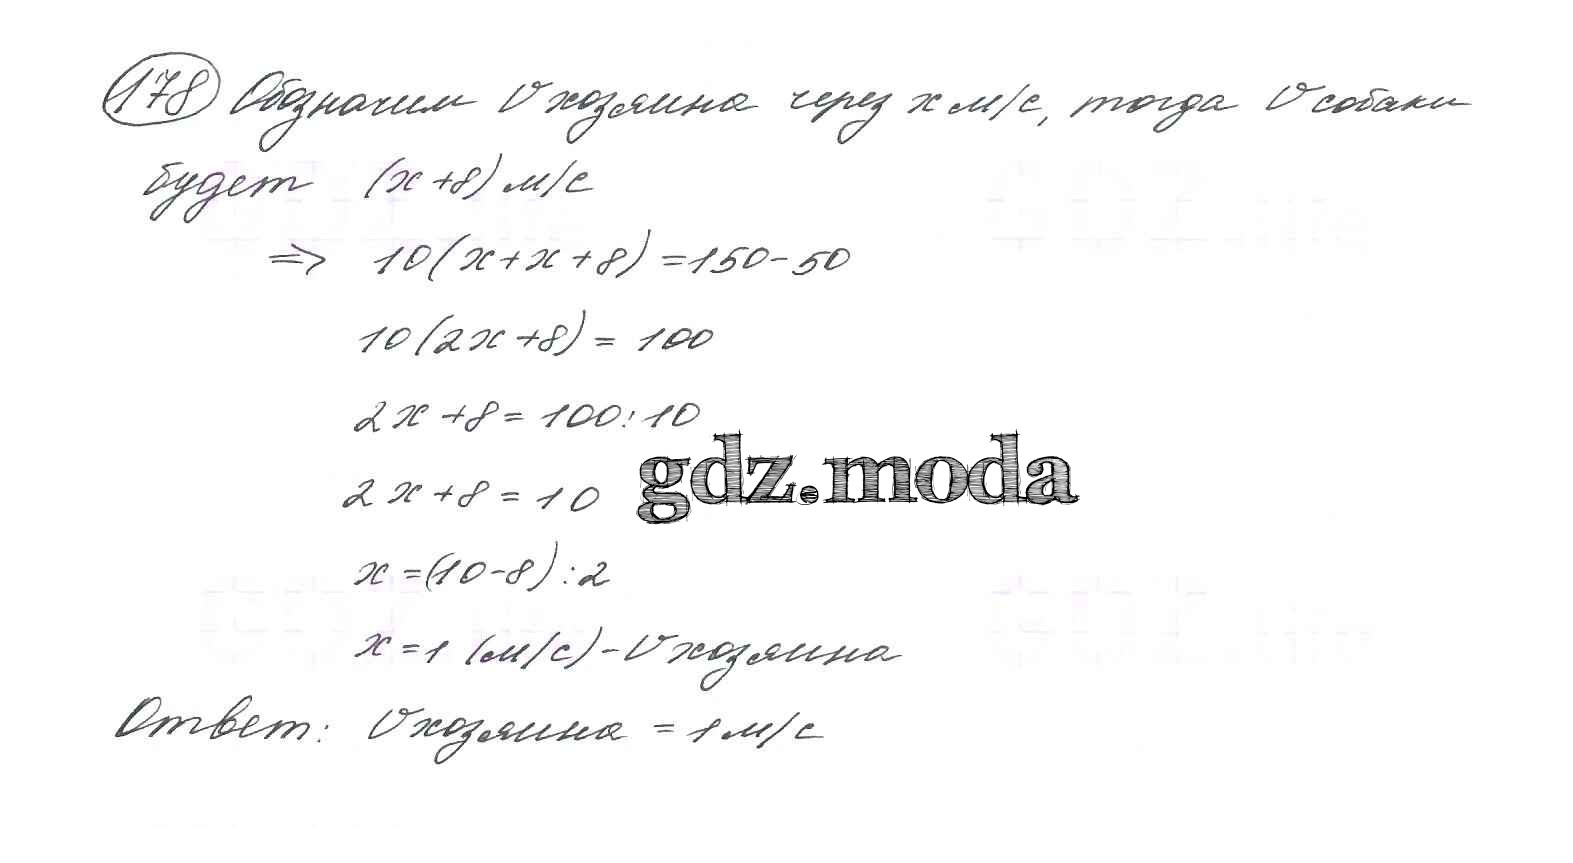 178 Обозначим V хозяина через x м/с, тогда V собаки
будет (x+8) м/с
=> 10(x+x+8)=150-50
10(2x+8)= 100
2x+8= 100:10
gdz.moda
2x+8=10
x=(10-8):2
x=1 (м/с)-V хозяина
Ответ: V хозяина = 1 м/с